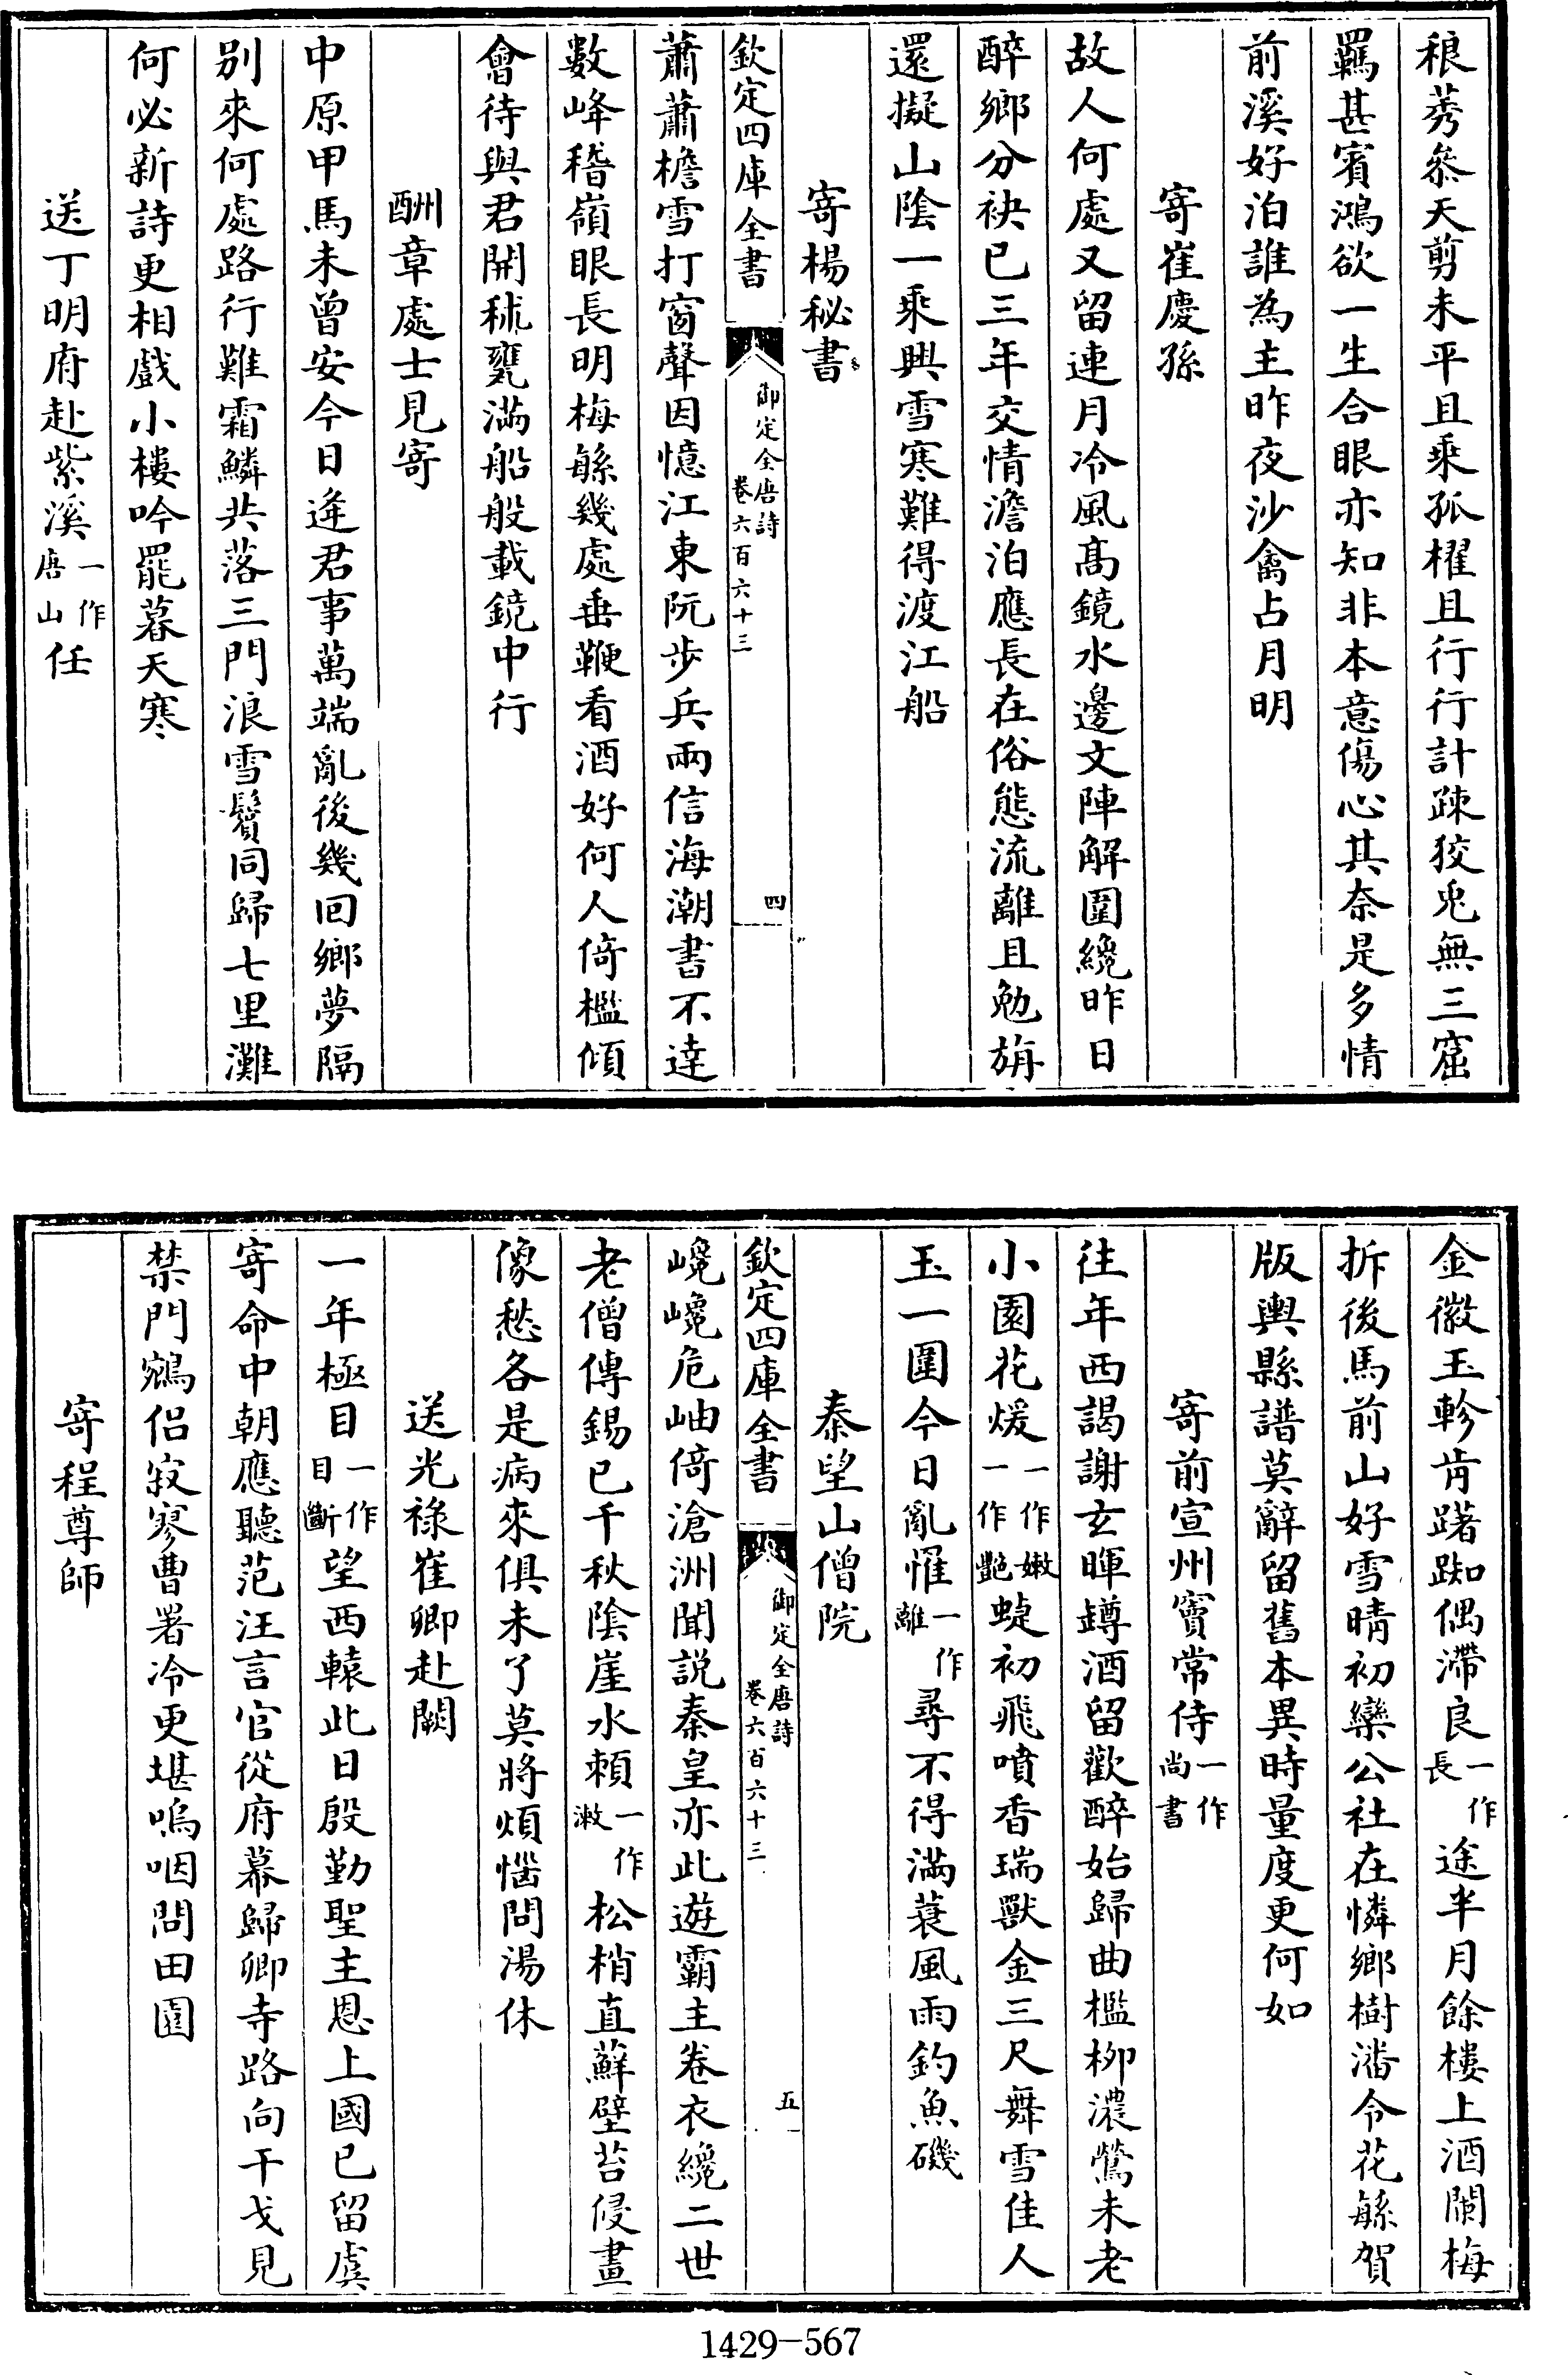 稂莠叅天剪未平且乘孤櫂且行行計疎狡兎無三窟
羈甚賓鴻欲一生合眼亦知非本意傷心其奈是多情
前溪好泊誰為主昨夜沙禽占月明
寄崔慶孫
故人何處又留連月冷風髙鏡水邊文陣解圍纔昨日
醉鄉分袂已三年交情澹泊應長在俗態流離且勉旃
還擬山隂一乘興雪寒難得渡江船
寄楊秘書
欽定四庫全書
御定全唐詩
卷六百六十三
四
蕭蕭檐雪打窗聲因憶江東阮步兵兩信海潮書不逹
數峰稽嶺眼長明梅緐幾處垂鞭看酒好何人倚檻傾
會待與君開秫甕滿船般載鏡中行
酬章處士見寄
中原甲馬未曾安今日逄君事萬端亂後幾回鄉夢隔
别來何處路行難霜鱗共落三門浪雪鬢同歸七里灘
何必新詩更相戲小樓吟罷暮天寒
送丁明府赴紫溪一作唐山任
金徽玉軫肯躇踟偶滯良一作長途半月餘樓上酒闌梅
拆後馬前山好雪晴初欒公社在憐鄉樹潘令花緐賀
版輿縣譜莫辭留舊本異時量度更何如
寄前宣州竇常侍一作尚書
往年西謁謝玄暉罇酒留歡醉始歸曲檻柳濃鶯未老
小園花煖一作嫩一作艶蜨初飛噴香瑞獸金三尺舞雪佳人
玉一圍今日亂罹一作離尋不得滿蓑風雨釣魚磯
秦望山僧院
欽定四庫全書
御定全唐詩
卷六百六十三
五
巉巉危岫倚滄洲聞說秦皇亦此遊霸主卷衣纔二世
老僧傳錫已千秋隂崖水賴一作潄松梢直蘚壁苔侵畫
像愁各是病來俱未了莫將煩惱問湯休
送光祿崔卿赴闕
一年極目一作目斷望西轅此日殷勤聖主恩上國已留虞
寄命中朝應聽范汪言官從府幕歸卿寺路向干戈見
禁門鵷侣寂寥曹署冷更堪嗚咽問田園
寄程尊師
1429-567